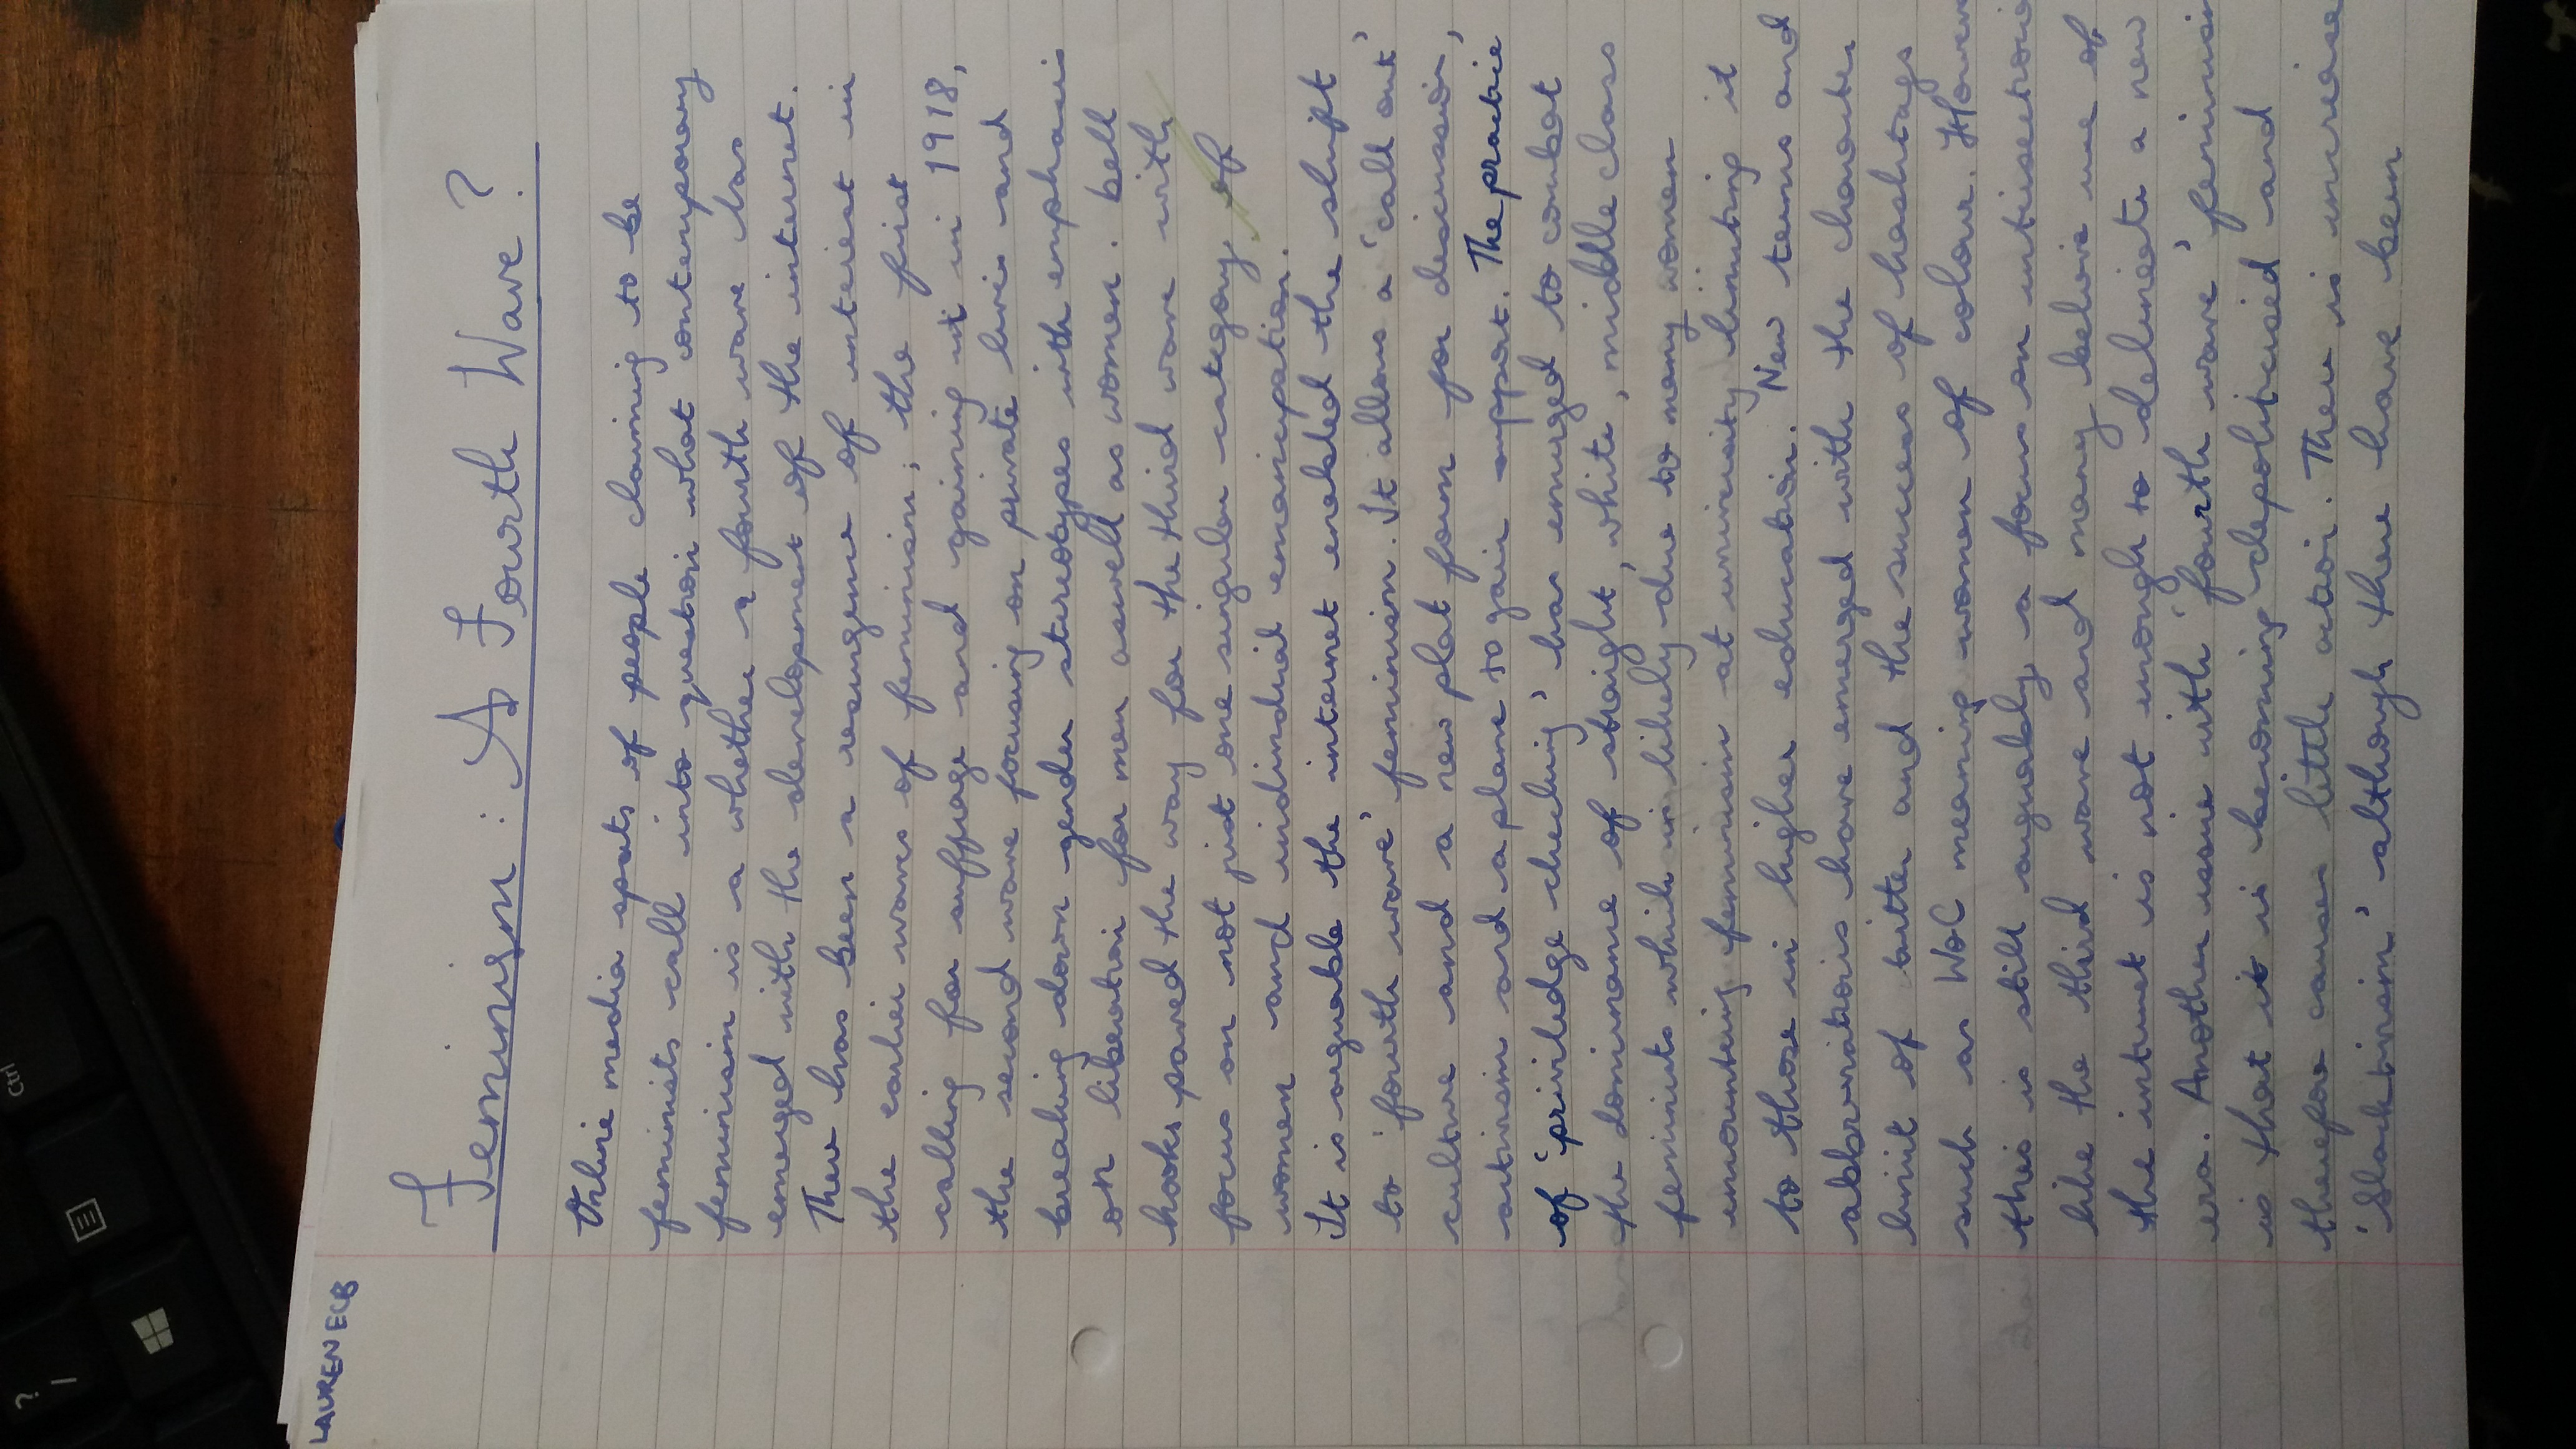 LAUREN ECB
Feminism : A Fourth Wave ?
Online media spats of people claiming to be
feminists call into question what contemporary
feminism is a whether a fourth wave has
emerged with the development of the internet.
There has been a resurgence of interest in
the earlier waves of feminism; the first
calling for suffrage and gaining it in 1918,
the second wave focusing on private lives and
breaking down gender stereotypes with emphasis
on liberation for men aswell as women. bell
hooks paved the way for the third wave with
focus on not just one singular category of
women and individual emancipation.
It is arguable the internet enabled the shift
to 'fourth wave' feminism. It allows a 'call out'
culture and a new plat form for discussion,
activism and a plane to gain support. The practice
of 'priviledge checking' has emerged to combat
the dominance of straight, white, middle class
feminists which is likely due to many women
encountering feminism at university limiting it
to those in higher education. New terms and
abbreviations have emerged with the character
limit of twitter and the success of hashtags
such as WoC meaning women of colour. However
this is still arguably a focus on intersectiona
like the third wave and many believe use of
the internet is not enough to delineate a new
era. Another issue with 'fourth wave' feminism
is that it is becoming depoliticised and
therefore causes little action. There is increase
'Slacktivism' although there have been
Ctrl
?
/